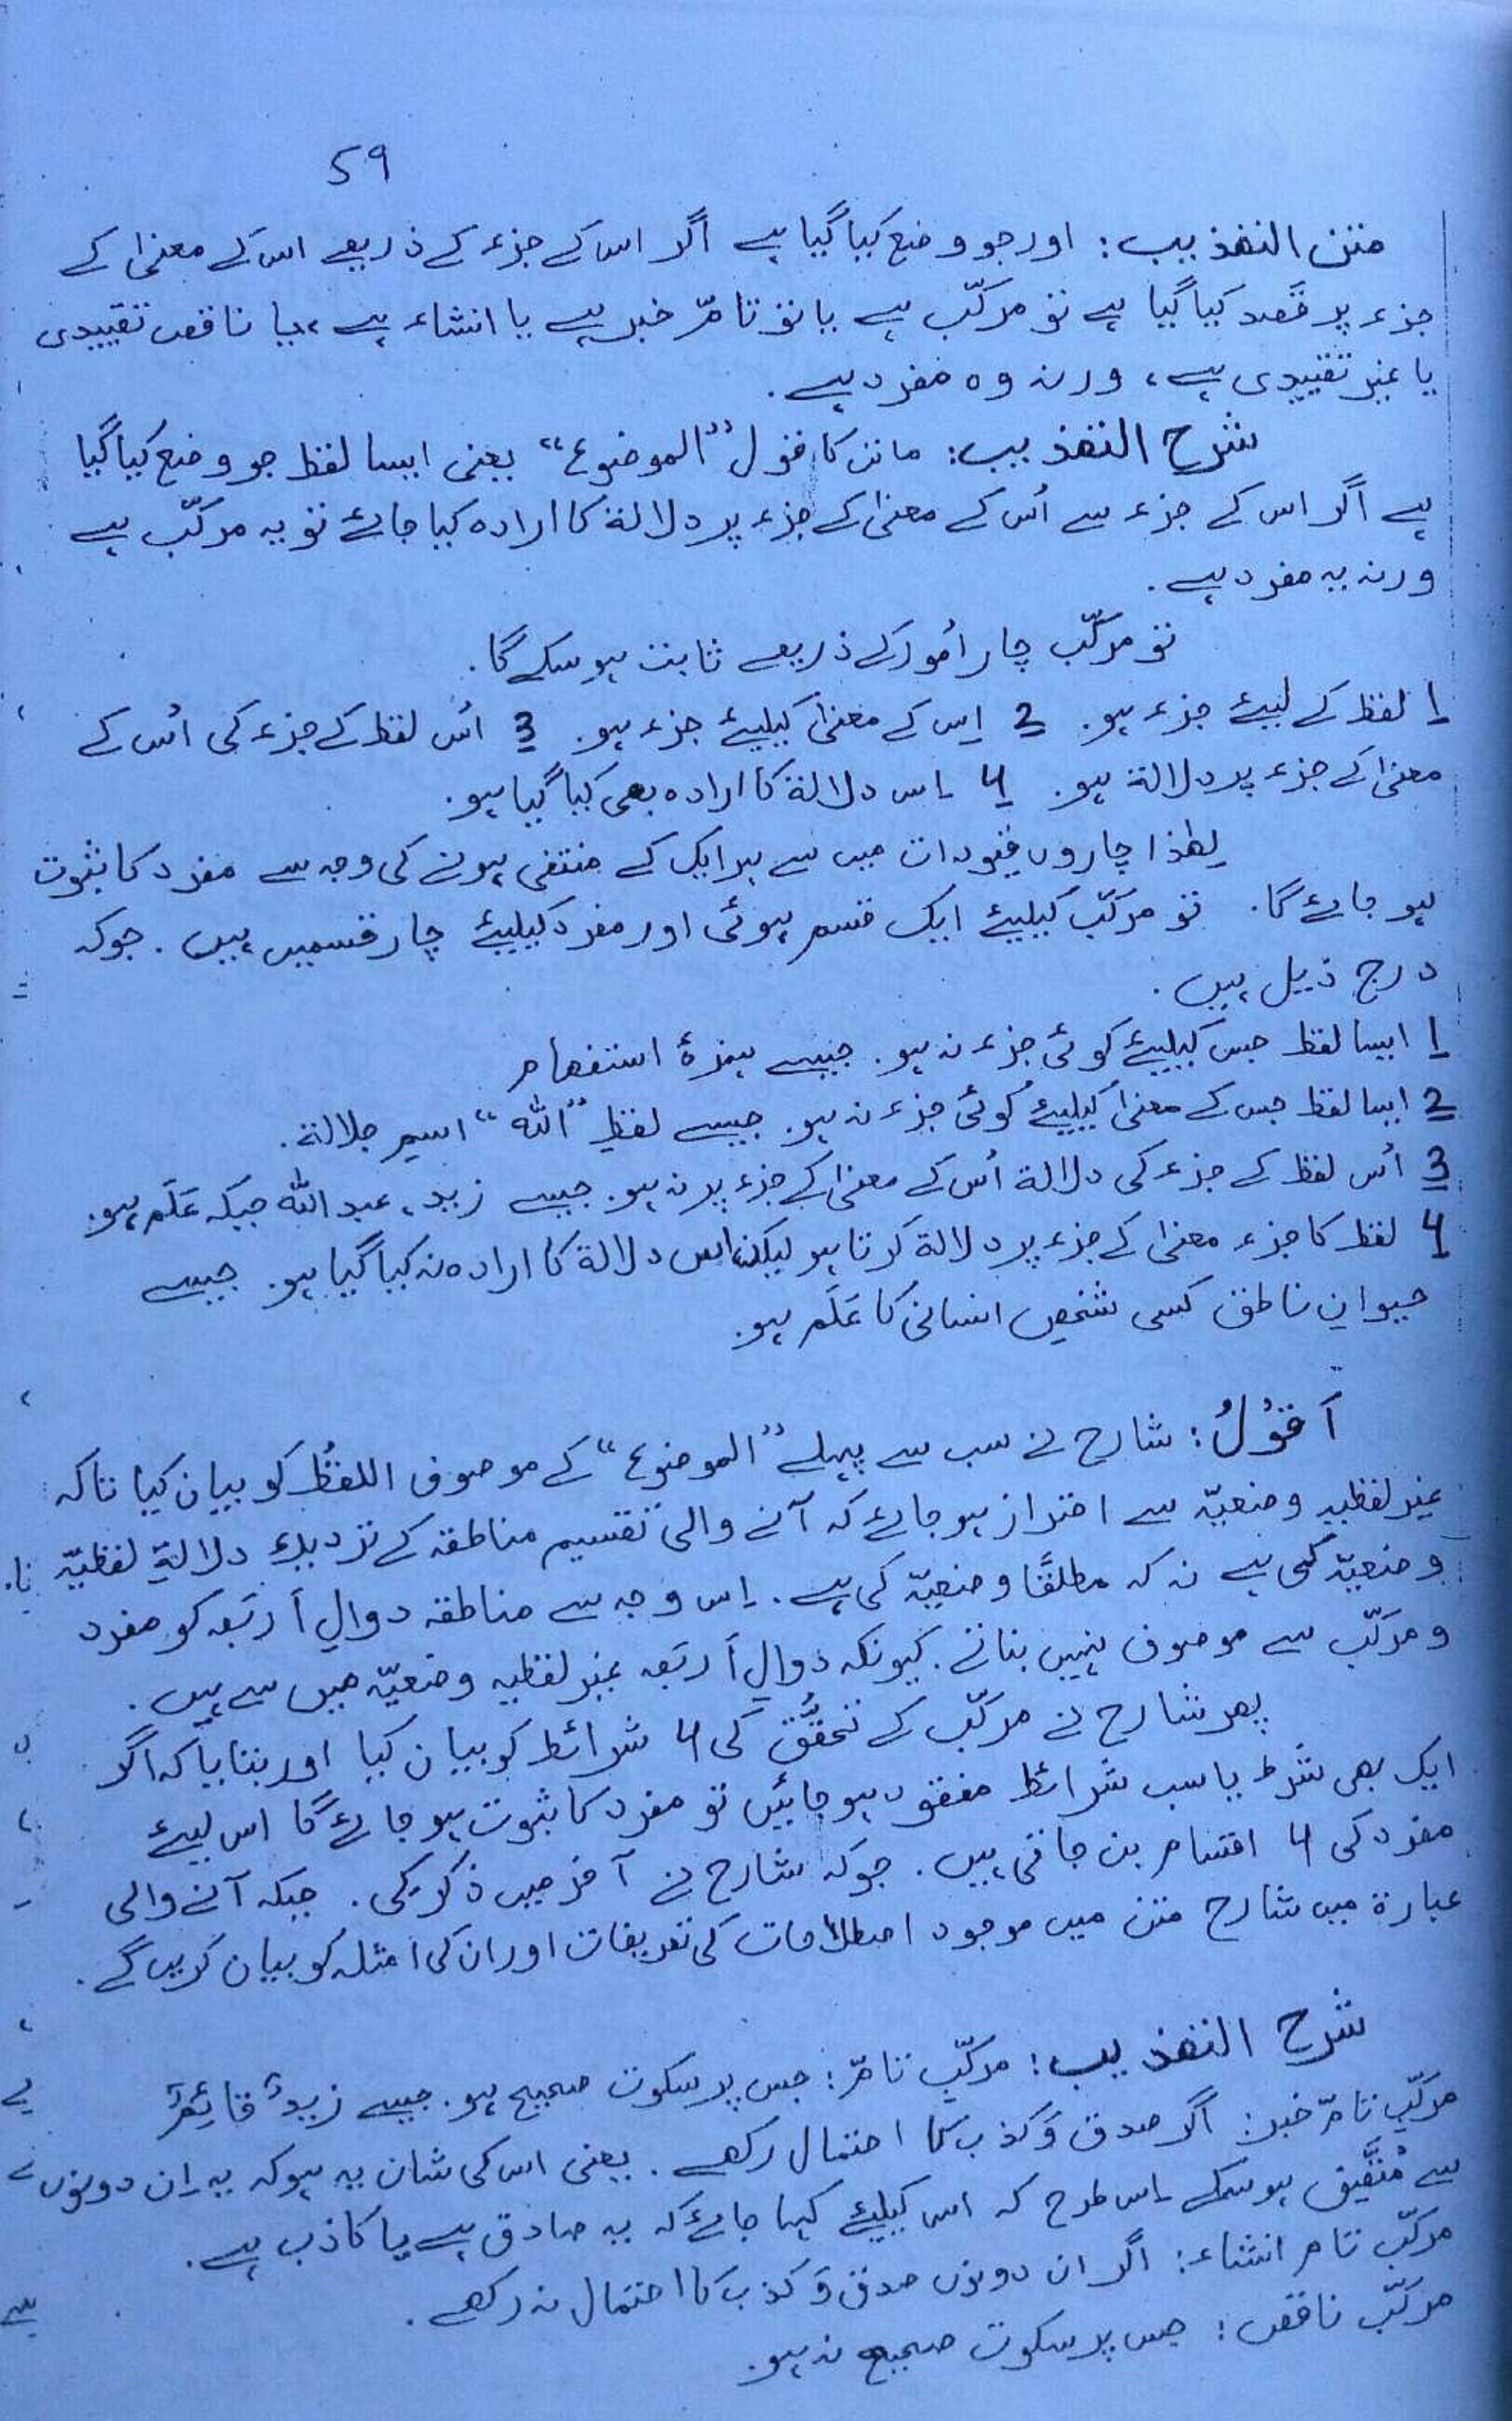 59
متن التھذیب: اور جو وضع کیا گیا ہے اگر اس کے جزء کے ذریعے اس کے معنیٰ کے
جزء پر قصد کیا گیا ہے تو مرکّب ہے یا تو تامّ خبر ہے یا انشاء ہے، یا ناقص تقییدی
یا غیر تقییدی ہے، ورنہ وہ مفرد ہے.
شرح التھذیب: ماتن کا قول "الموضوع" یعنی ایسا لفظ جو وضع کیا گیا
ہے اگر اس کے جزء سے اُس کے معنیٰ کے جزء پر دلالۃ کا ارادہ کیا جائے تو یہ مرکّب ہے
ورنہ یہ مفرد ہے.
تو مرکّب چار اُمور کے ذریعے ثابت ہو سکے گا.
1 لفظ کے لیئے جزء ہو. 2 اِس کے معنیٰ کیلیئے جزء ہو. 3 اُس لفظ کے جزء کی اُس کے
معنیٰ کے جزء پر دلالۃ ہو. 4 اِس دلالۃ کا ارادہ بھی کیا گیا ہو.
لھٰذا چاروں قیودات میں سے ہر ایک کے منتفی ہونے کی وجہ سے مفرد کا ثبوت
ہو جائے گا. تو مرکّب کیلیئے ایک قسم ہوئی اور مفرد کیلیئے چار قسمیں ہیں. جو کہ
درج ذیل ہیں.
1 ایسا لفظ جس کیلیئے کوئی جزء نہ ہو. جیسے ہمزۂ استفھام
2 ایسا لفظ جس کے معنیٰ کیلیئے کوئی جزء نہ ہو. جیسے لفظِ "اللہ" اسمِ جلالۃ.
3 اُس لفظ کے جزء کی دلالۃ اُس کے معنیٰ کے جزء پر نہ ہو. جیسے زید، عبد اللہ جبکہ عَلَم ہو.
4 لفظ کا جزء معنیٰ کے جزء پر دلالۃ کرتا ہو لیکن اس دلالۃ کا ارادہ نہ کیا گیا ہو. جیسے
حیوانِ ناطق کسی شخصِ انسانی کا عَلَم ہو.
اَقُوْلُ: شارح نے سب سے پہلے "الموضوع" کے موصوف اللفظُ کو بیان کیا تاکہ
غیر لفظیہ وضعیّہ سے احتراز ہو جائے کہ آنے والی تقسیم مناطقہ کے نزدیک دلالۃِ لفظیّہ
وضعیّہ کی ہے نہ کہ مطلقًا وضعیّہ کی ہے. اِس وجہ سے مناطقہ دوالِ اَربَعہ کو مفرد
و مرکّب سے موصوف نہیں بناتے. کیونکہ دوالِ اَربَعہ غیر لفظیہ وضعیّہ میں سے ہیں.
پھر شارح نے مرکّب کے تحقُّق کی 4 شرائط کو بیان کیا اور بتایا کہ اگر
ایک بھی شرط یا سب شرائط مفقود ہو جائیں تو مفرد کا ثبوت ہو جائے گا اس لیئے
مفرد کی 4 اقسام بن جاتی ہیں. جو کہ شارح نے آخر میں ذکر کی. جبکہ آنے والی
عبارۃ میں شارح متن میں موجود اصطلاحات کی تعریفات اور ان کی امثلہ کو بیان کریں گے.
شرح التھذیب: مرکّبِ تامّ: جس پر سکوت صحیح ہو. جیسے زیدٌ قائِمٌ
مرکّبِ تامّ خبر: اگر صدق وَ کذب کا احتمال رکھے. یعنی اس کی شان یہ ہو کہ یہ اِن دونوں
سے مُتَّصِف ہو سکے اِس طرح کہ اس کیلیئے کہا جائے کہ یہ صادق ہے یا کاذب ہے.
مرکّبِ تام انشاء: اگر ان دونوں صدق وَ کذب کا احتمال نہ رکھے.
مرکّبِ ناقص: جس پر سکوت صحیح نہ ہو.